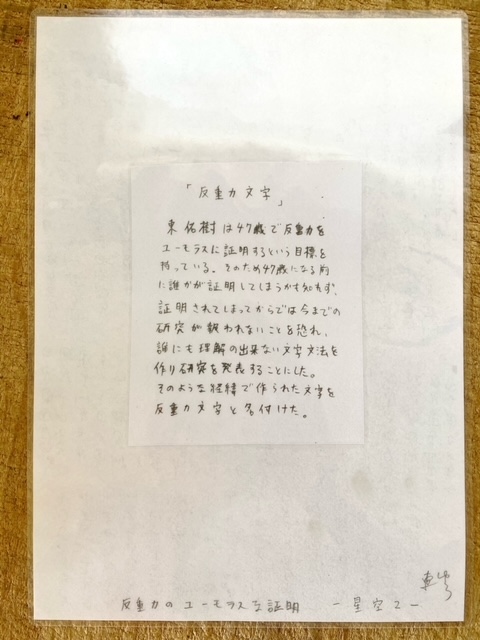 「反重力文字」
東 佑樹は47歳で反重力を
ユーモラスに証明するという目標を
持っている。そのため47歳になる前
に誰かが証明してしまうかも知れず、
証明されてしまってからでは今までの
研究が報われないことを恐れ、
誰にも理解の出来ない文字文法を
作り研究を発表することにした。
そのような経緯で作られた文字を
反重力文字と名付けた。
反重力のユーモラスな証明 ー星空2ー